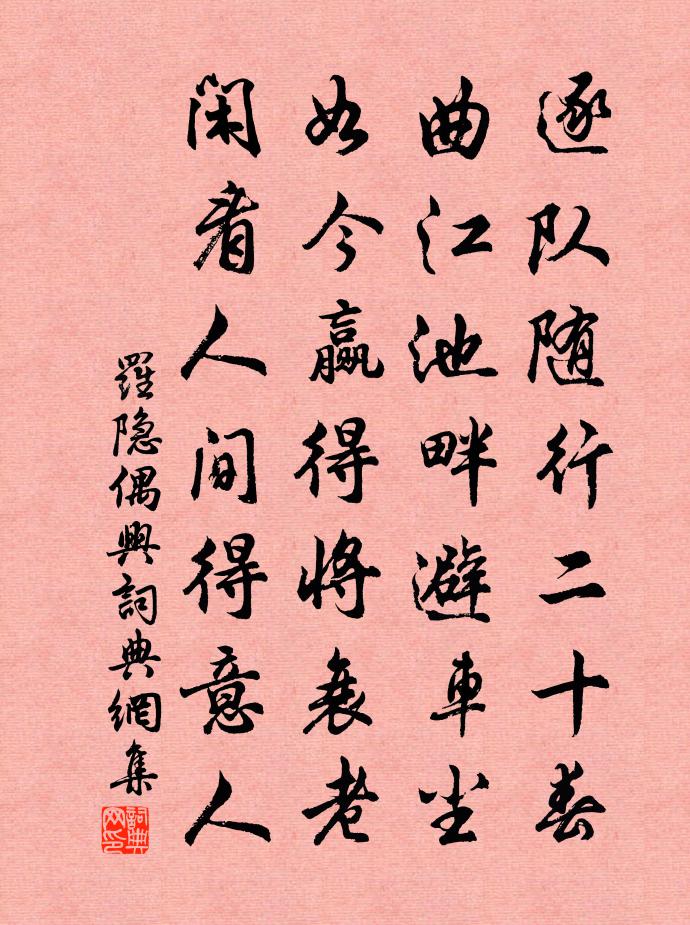 逐队随行二十春
曲江池畔避車尘
如今赢得将衰老
闲看人间得意人
羅隐偶興詞典網集
詞典网印